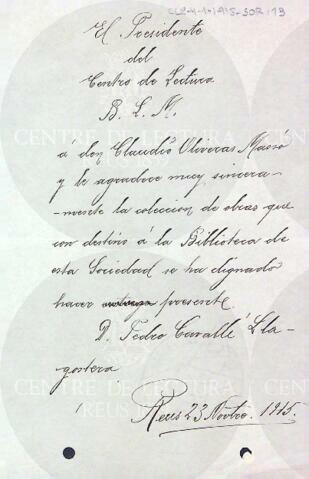 El Presidente
del
Centro de Lectura
B. L. M.
á don Claudio Oliveras Massó
y le agradece muy sincera-
-mente la coleccion de obras que
con destino á la Biblioteca de
esta Sociedad se ha dignado
hacer presente
D. Pedro Cavallé Lla-
gostera
Reus 23 Novbre. 1915.
CENTRE DE LECTURA
CENTRE DE LECTURA
REUS